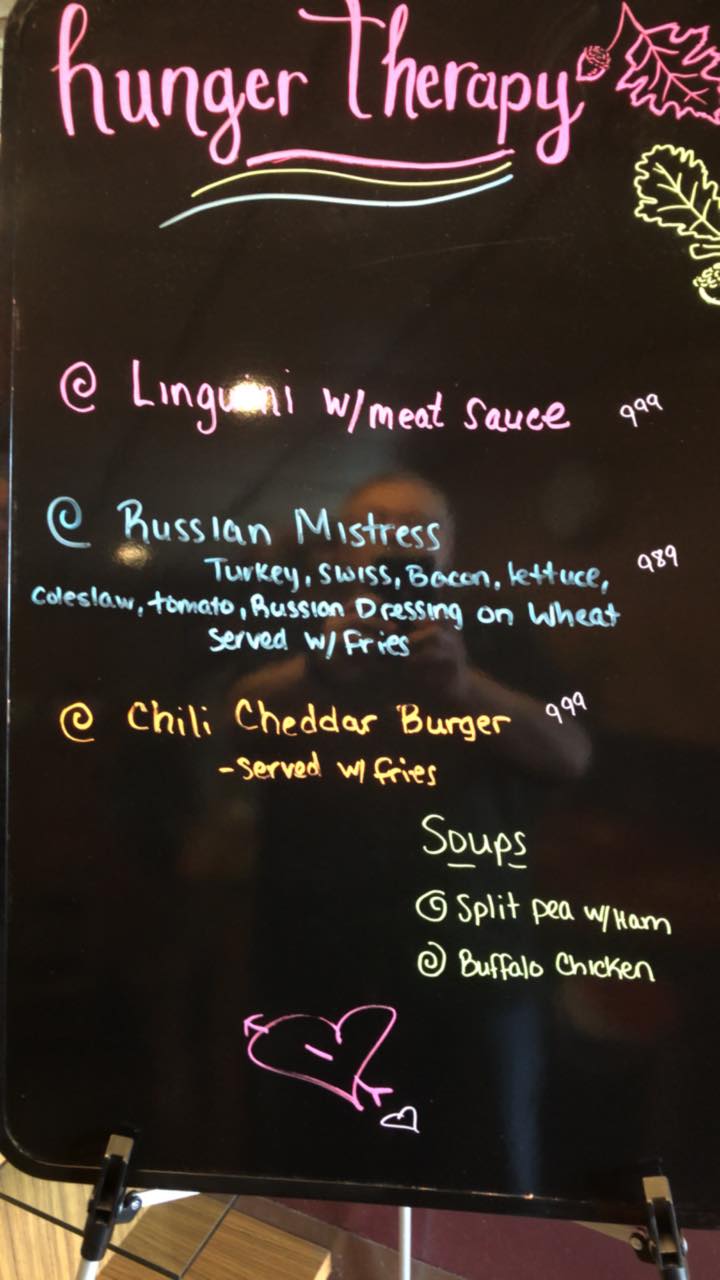 hunger Therapy
Linguini w/meat sauce 999
Russian Mistress
Turkey, Swiss, Bacon, lettuce, 989
Coleslaw, tomato, Russian Dressing on Wheat
Served w/Fries
Chili Cheddar Burger 999
-Served w/ fries
Soups
Split pea w/Ham
Buffalo Chicken